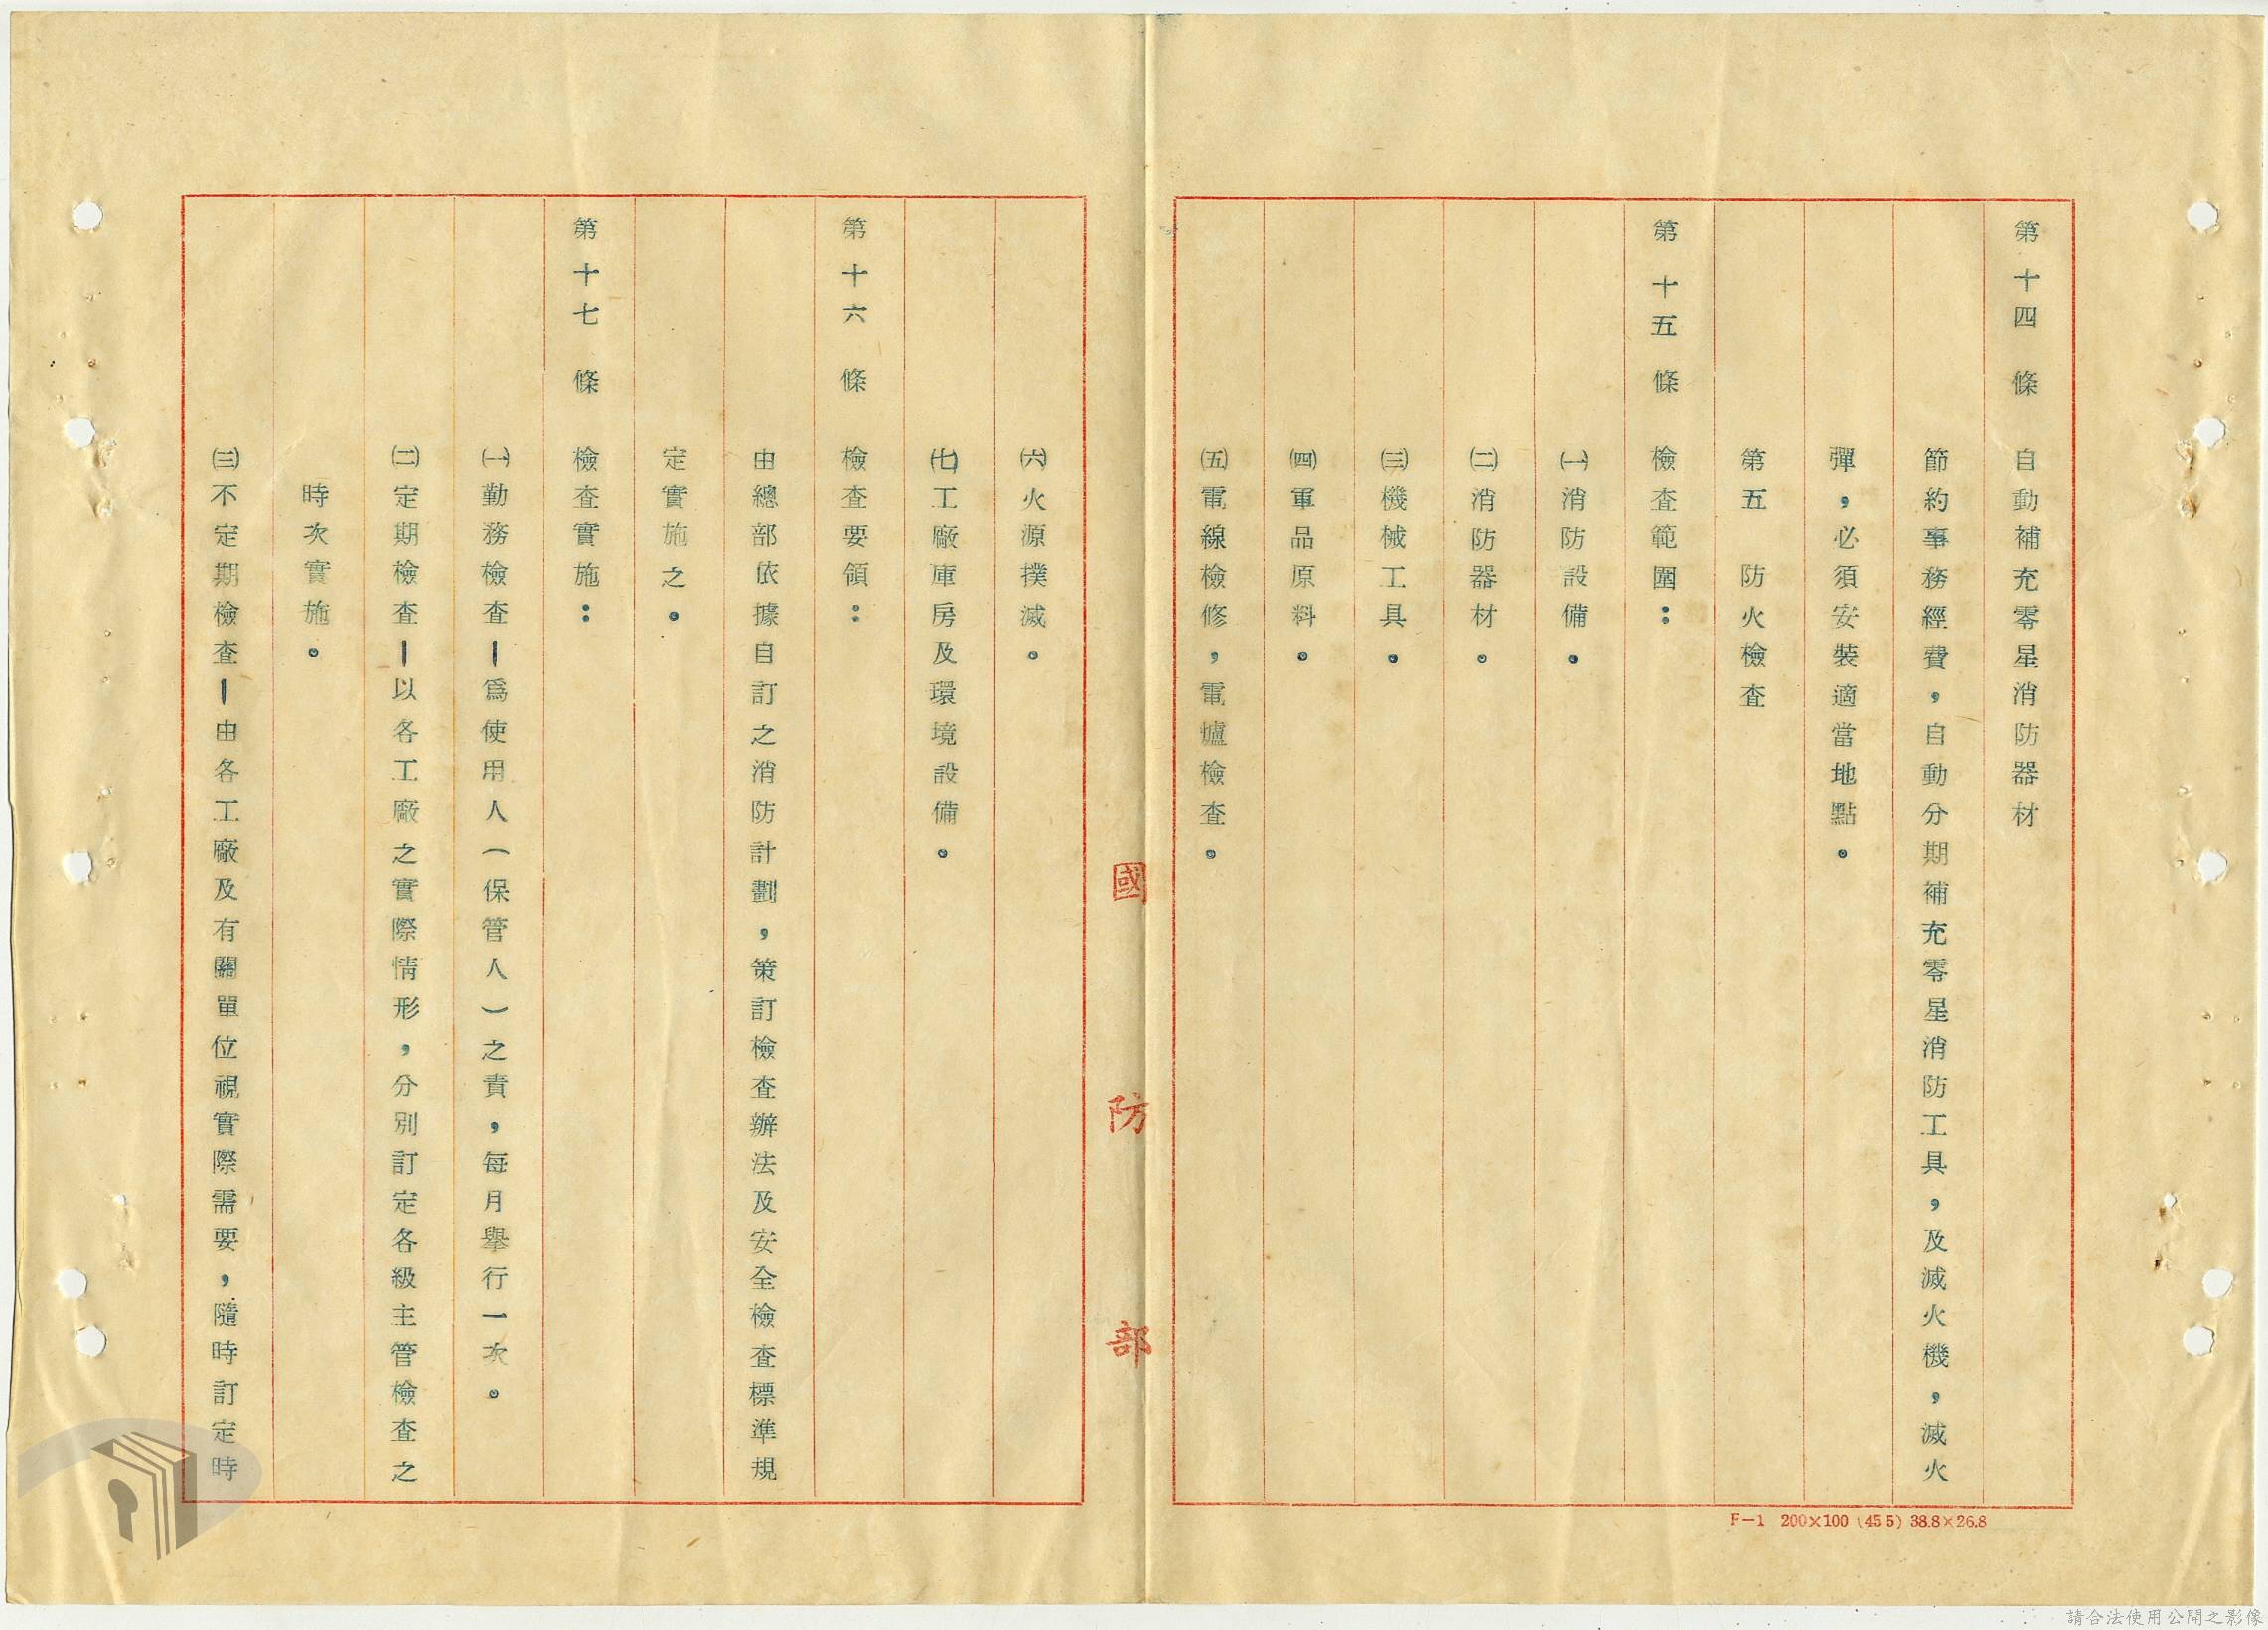 第十四條 自動補充零星消防器材
節約事務經費，自動分期補充零星消防工具，及滅火機，滅火
彈，必須安裝適當地點。
第五 防火檢查
第十五條 檢查範圍：
㈠消防設備。
㈡消防器材。
㈢機械工具。
㈣軍品原料。
㈤電線檢修，電爐檢查。
國防部
㈥火源撲滅。
㈦工廠庫房及環境設備。
第十六條 檢查要領：
由總部依據自訂之消防計劃，策訂檢查辦法及安全檢查標準規
定實施之。
第十七條 檢查實施：
㈠勤務檢查—為使用人（保管人）之責，每月舉行一次。
㈡定期檢查—以各工廠之實際情形，分別訂定各級主管檢查之
時次實施。
㈢不定期檢查—由各工廠及有關單位視實際需要，隨時訂定時
F－1 200×100 (45 5) 38.8×26.8
請合法使用公開之影像